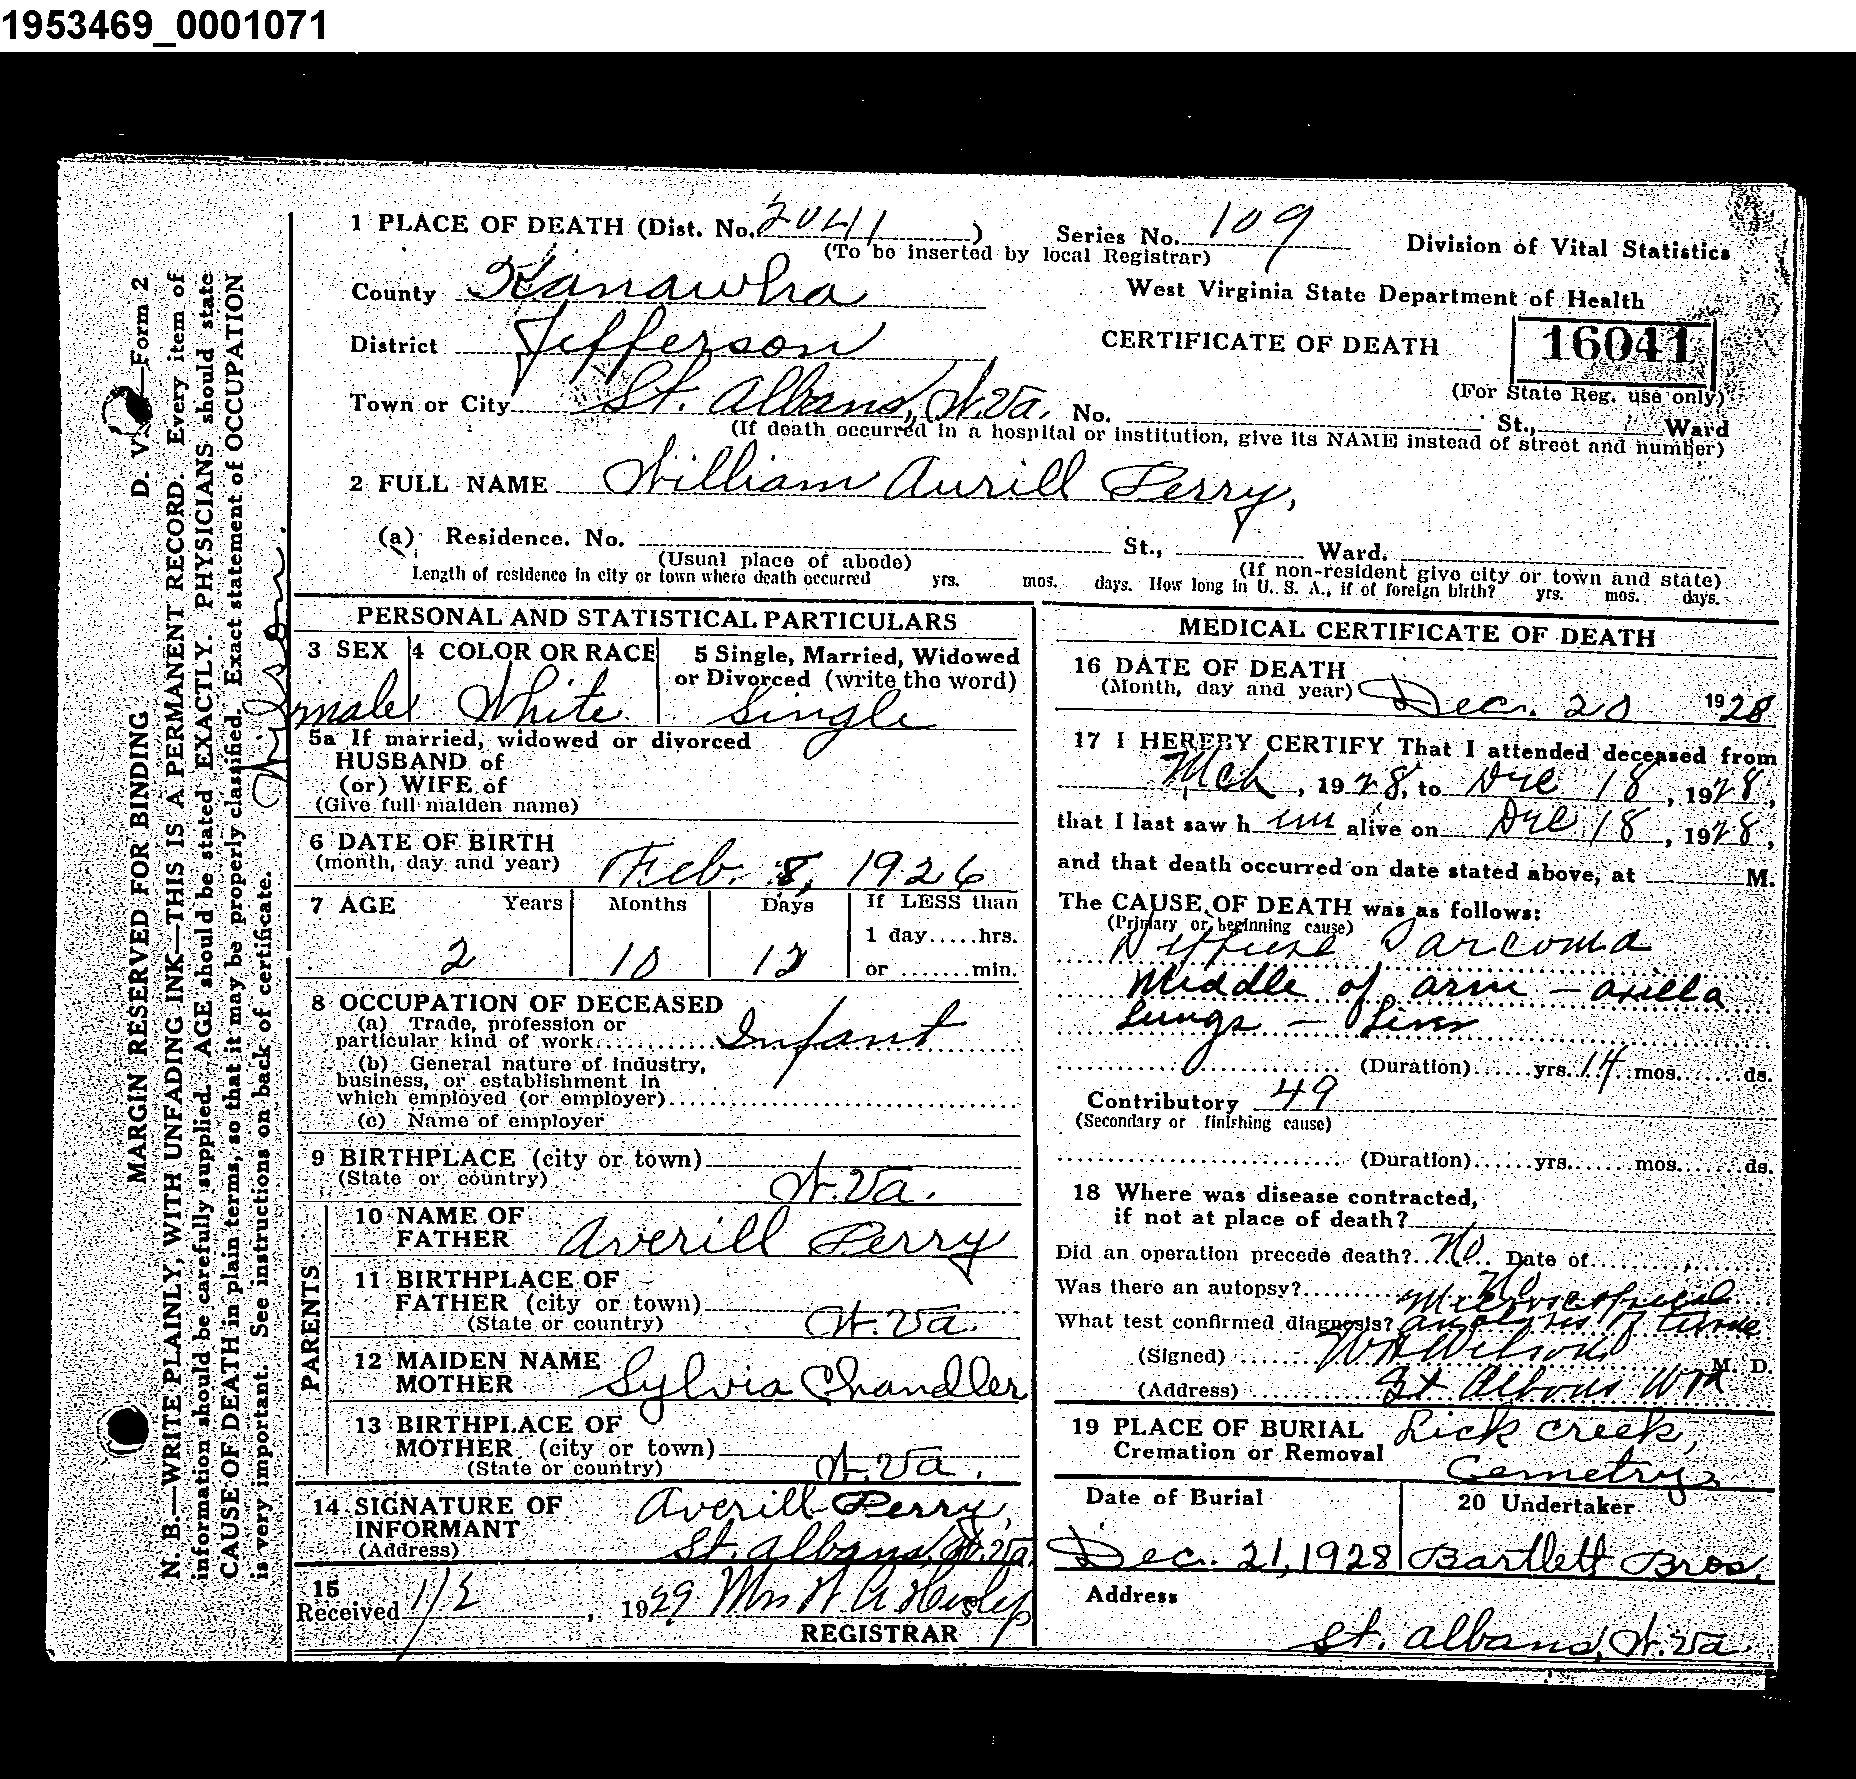 1953469_0001071
1 PLACE OF DEATH (Dist. No. 2041) Series No. 109 Division of Vital Statistics
(To be inserted by local Registrar)
County Kanawha West Virginia State Department of Health
District Jefferson CERTIFICATE OF DEATH 16041
(For State Reg. use only)
Town or City St. Albans, W.Va. No. St., Ward
(If death occurred in a hospital or institution, give its NAME instead of street and number)
2 FULL NAME William Aurill Perry,
(a) Residence. No. St., Ward.
(Usual place of abode) (If non-resident give city or town and state)
Length of residence in city or town where death occurred yrs. mos. days. How long in U. S. A., if of foreign birth? yrs. mos. days.
PERSONAL AND STATISTICAL PARTICULARS
3 SEX 4 COLOR OR RACE 5 Single, Married, Widowed
or Divorced (write the word)
male White Single
5a If married, widowed or divorced
HUSBAND of
(or) WIFE of
(Give full maiden name)
6 DATE OF BIRTH
(month, day and year) Feb. 8, 1926
7 AGE Years Months Days If LESS than
1 day.....hrs.
2 10 12 or .......min.
8 OCCUPATION OF DECEASED
(a) Trade, profession or
particular kind of work Infant
(b) General nature of industry,
business, or establishment in
which employed (or employer)
(c) Name of employer
9 BIRTHPLACE (city or town)
(State or country) W.Va.
PARENTS
10 NAME OF
FATHER Averill Perry
11 BIRTHPLACE OF
FATHER (city or town)
(State or country) W.Va.
12 MAIDEN NAME
MOTHER Sylvia Chandler
13 BIRTHPLACE OF
MOTHER (city or town)
(State or country) W.Va.
14 SIGNATURE OF
INFORMANT Averill Perry,
(Address) St. Albans, W.Va.
15
Received 1/2, 1929 Mrs
REGISTRAR
MEDICAL CERTIFICATE OF DEATH
16 DATE OF DEATH
(Month, day and year) Dec. 20 1928
17 I HEREBY CERTIFY That I attended deceased from
Mch, 1928, to Dec 18, 1928,
that I last saw h im alive on Dec 18, 1928,
and that death occurred on date stated above, at M.
The CAUSE OF DEATH was as follows:
(Primary or beginning cause)
Diffuse Sarcoma
Middle of arm - axilla
Lungs - Liver
(Duration)......yrs. 14 mos.......ds.
Contributory 49
(Secondary or finishing cause)
(Duration)......yrs.......mos.......ds.
18 Where was disease contracted,
if not at place of death?
Did an operation precede death? No Date of
Was there an autopsy? No
What test confirmed diagnosis? Microscopical
analysis of
(Signed) Wilson M. D.
(Address) St Albans W Va
19 PLACE OF BURIAL Lick Creek,
Cremation or Removal Cemetry,
Date of Burial 20 Undertaker
Dec. 21, 1928 Bartlett Bros.
Address
St. Albans, W.Va.
D. V. S.—Form 2
MARGIN RESERVED FOR BINDING
N. B.—WRITE PLAINLY, WITH UNFADING INK—THIS IS A PERMANENT RECORD. Every item of
information should be carefully supplied. AGE should be stated EXACTLY. PHYSICIANS should state
CAUSE OF DEATH in plain terms, so that it may be properly classified. Exact statement of OCCUPATION
is very important. See instructions on back of certificate.